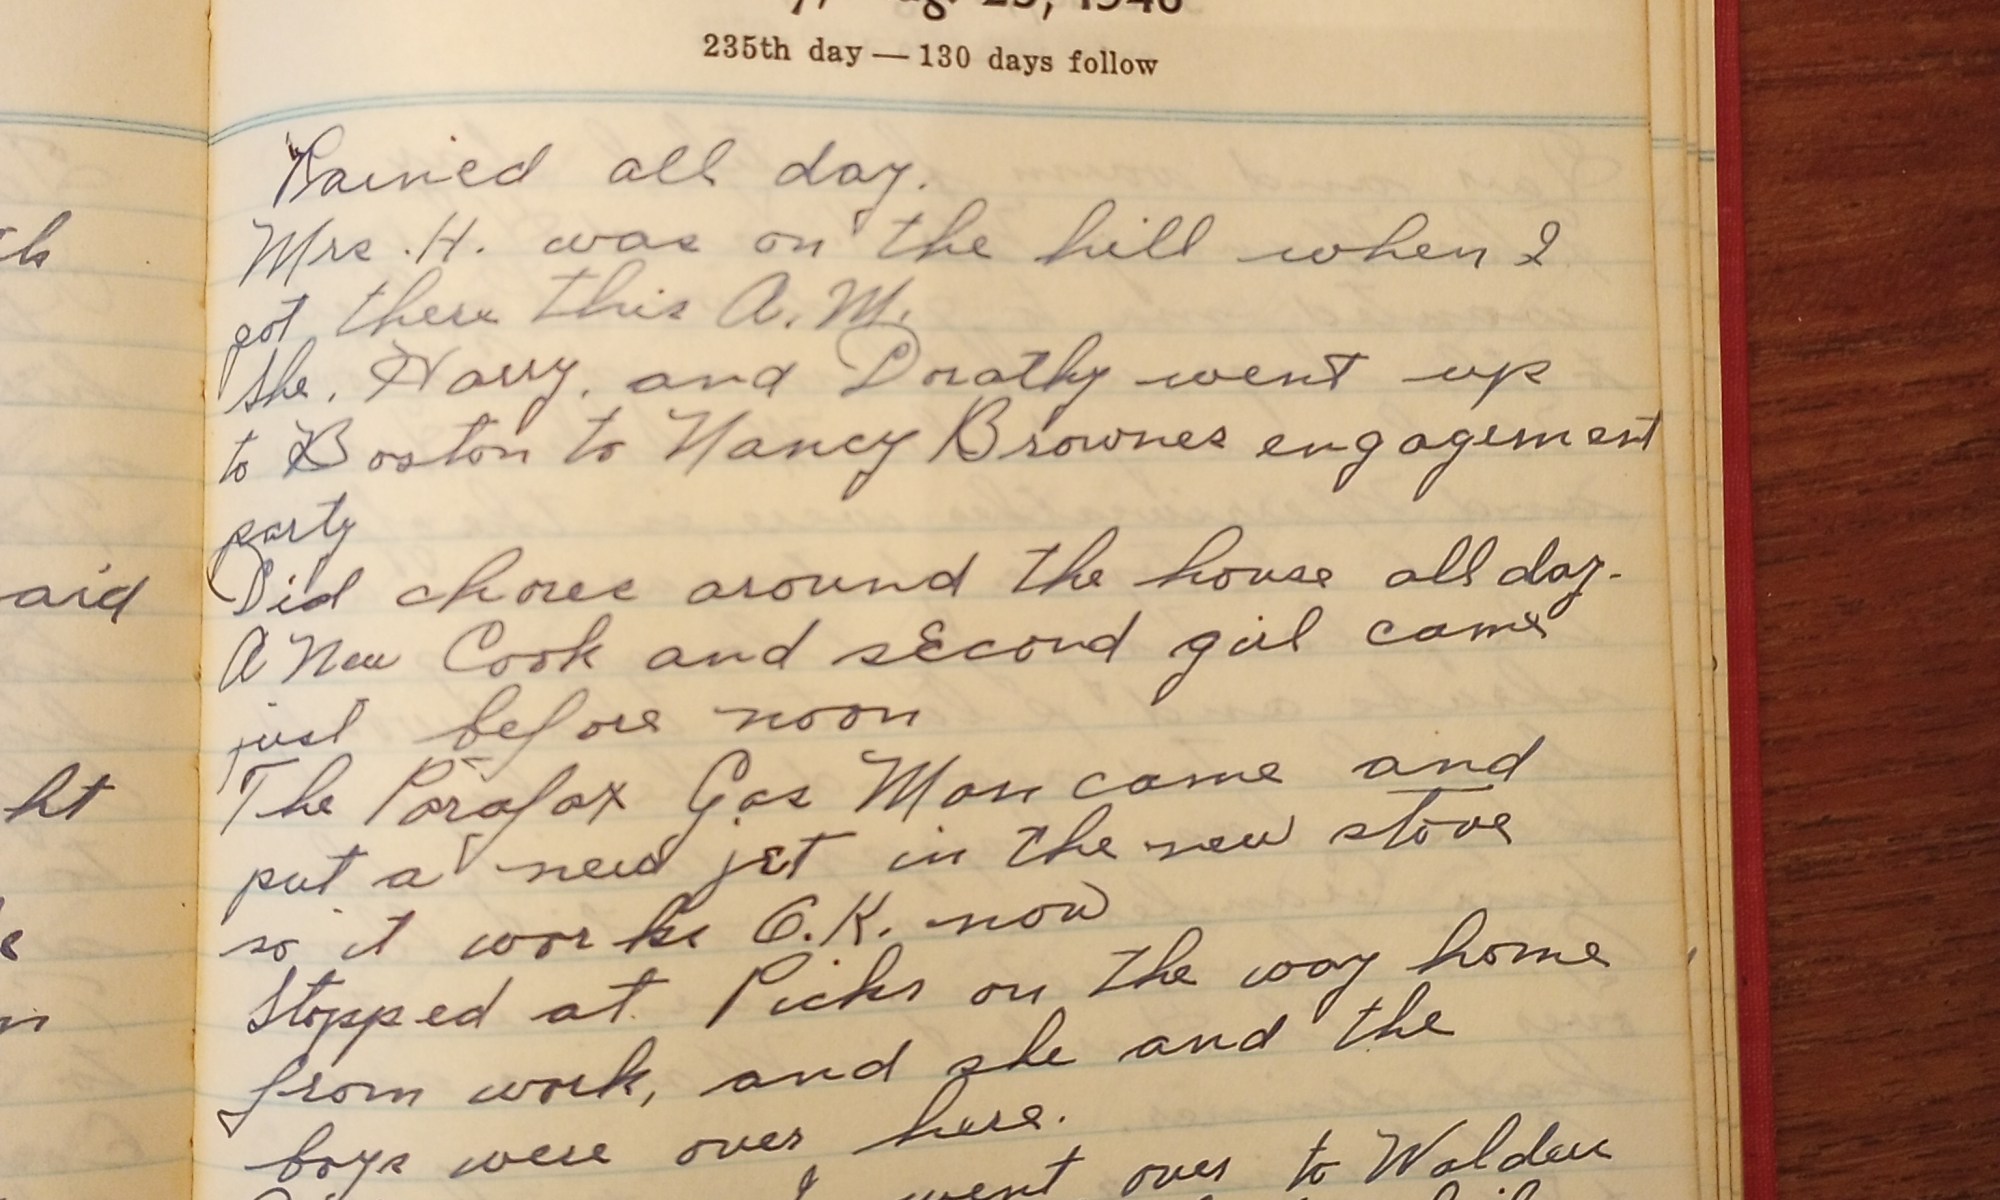 Aug. 23, 1946
235th day — 130 days follow
Rained all day.
Mrs. H. was on the hill when I
got there this A.M.
She, Harry, and Dorathy went up
to Boston to Nancy Brownes engagement
party
Did chores around the house all day.
A New Cook and second girl came
just before noon
The Parafax Gas Man came and
put a new jet in the new stove
so it works O.K. now
Stopped at Picks on the way home
from work, and she and the
boys were over here.
I went over to Walden
th
aid
ht